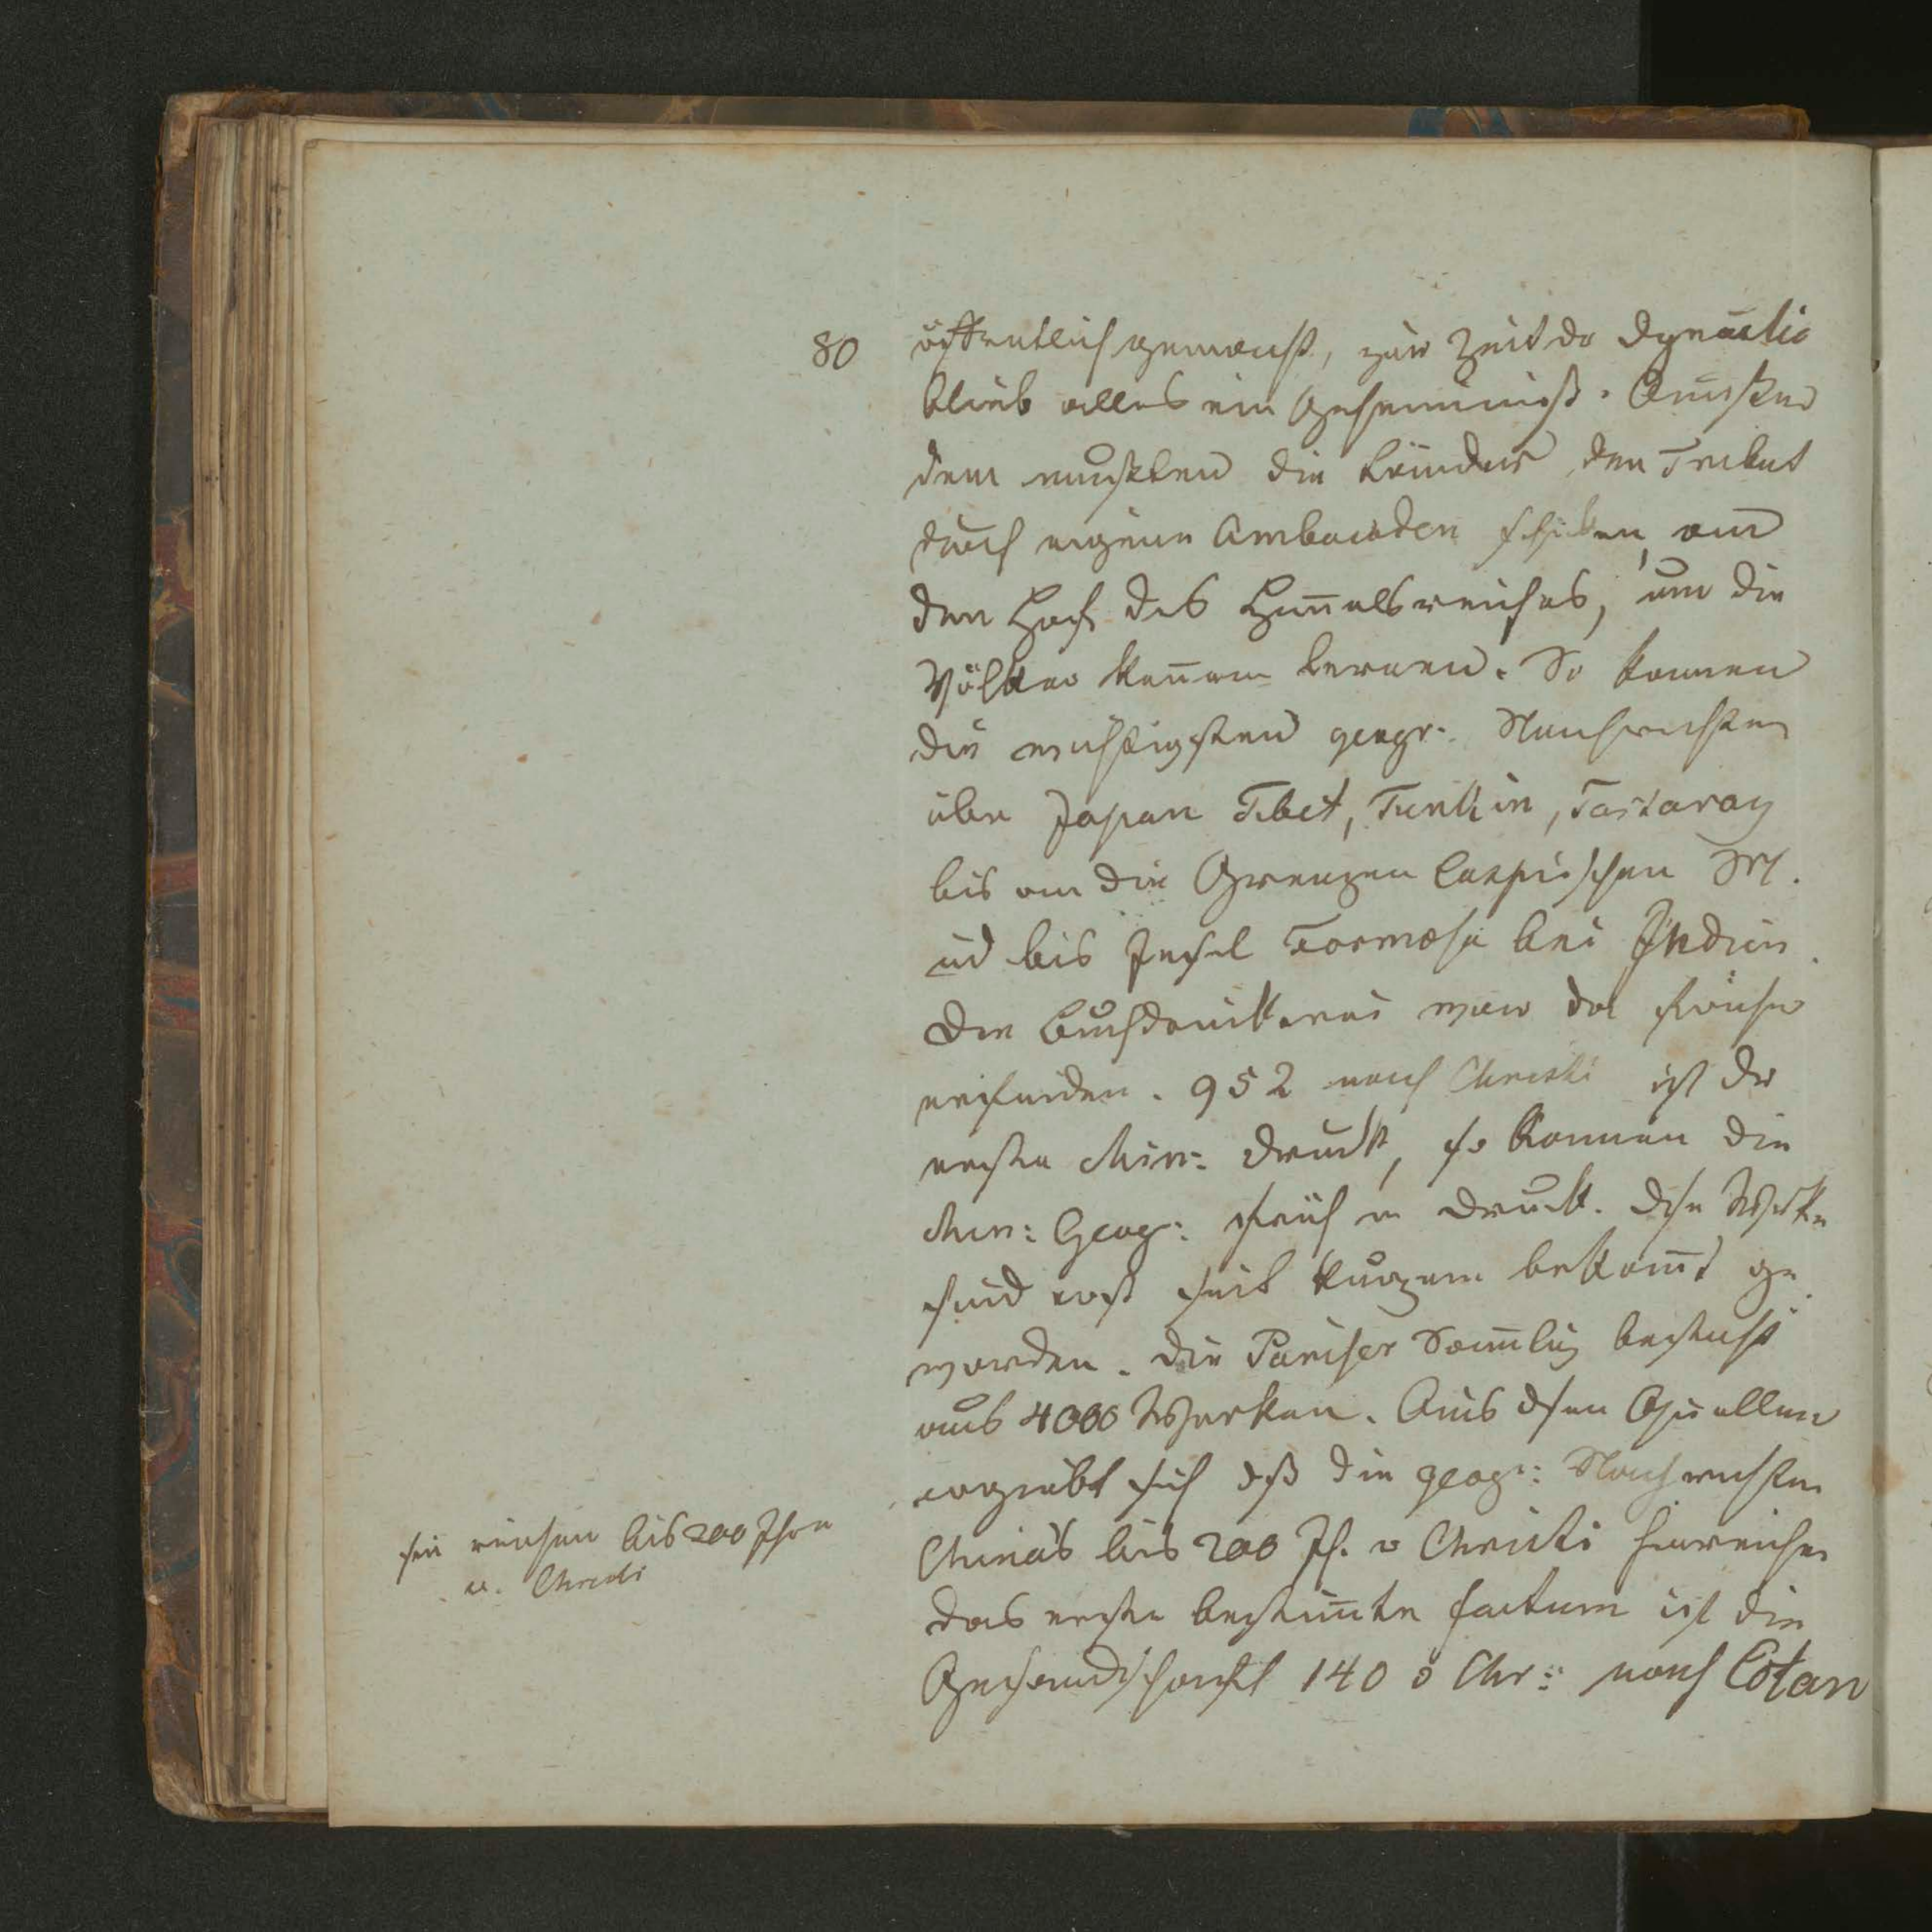 80
öffentlich gemacht, zur Zeit dr Dynastie
blieb alles ein Geheimniß. Außer
dem mußten die Länder den Tribut
durch eigene Ambaßaden schiken, an
den Hof des Himelsreiches, um die
Völker kenen lernen. So kamen
die wichtigsten geogr. Nachrichten
über Japan Tibet, Tunkin, Tartarey
bis an die Grenzen Caspischen M.
ud bis Insel Formosa bei Indien.
Die Buchdruckerei war da früher
erfunden. 952 nach Christi ist dr
erste Chin: Druck, so kamen die
Chin: Geogr: früh in Druck. Dse Werke
sind erst seit kurzem bekant ge
worden. Die Pariser Samlug besteht
aus 4000 Werken. Aus dsen Quellen
ergiebt sich dß die geogr: Nachrichten
China's bis 200 Jh. v Christi hinreichen
das erste bestimte factum ist die
Gesandschaft 140 v Chr: nach Cotan
sie reichen bis 200 Jhre
v. Christi